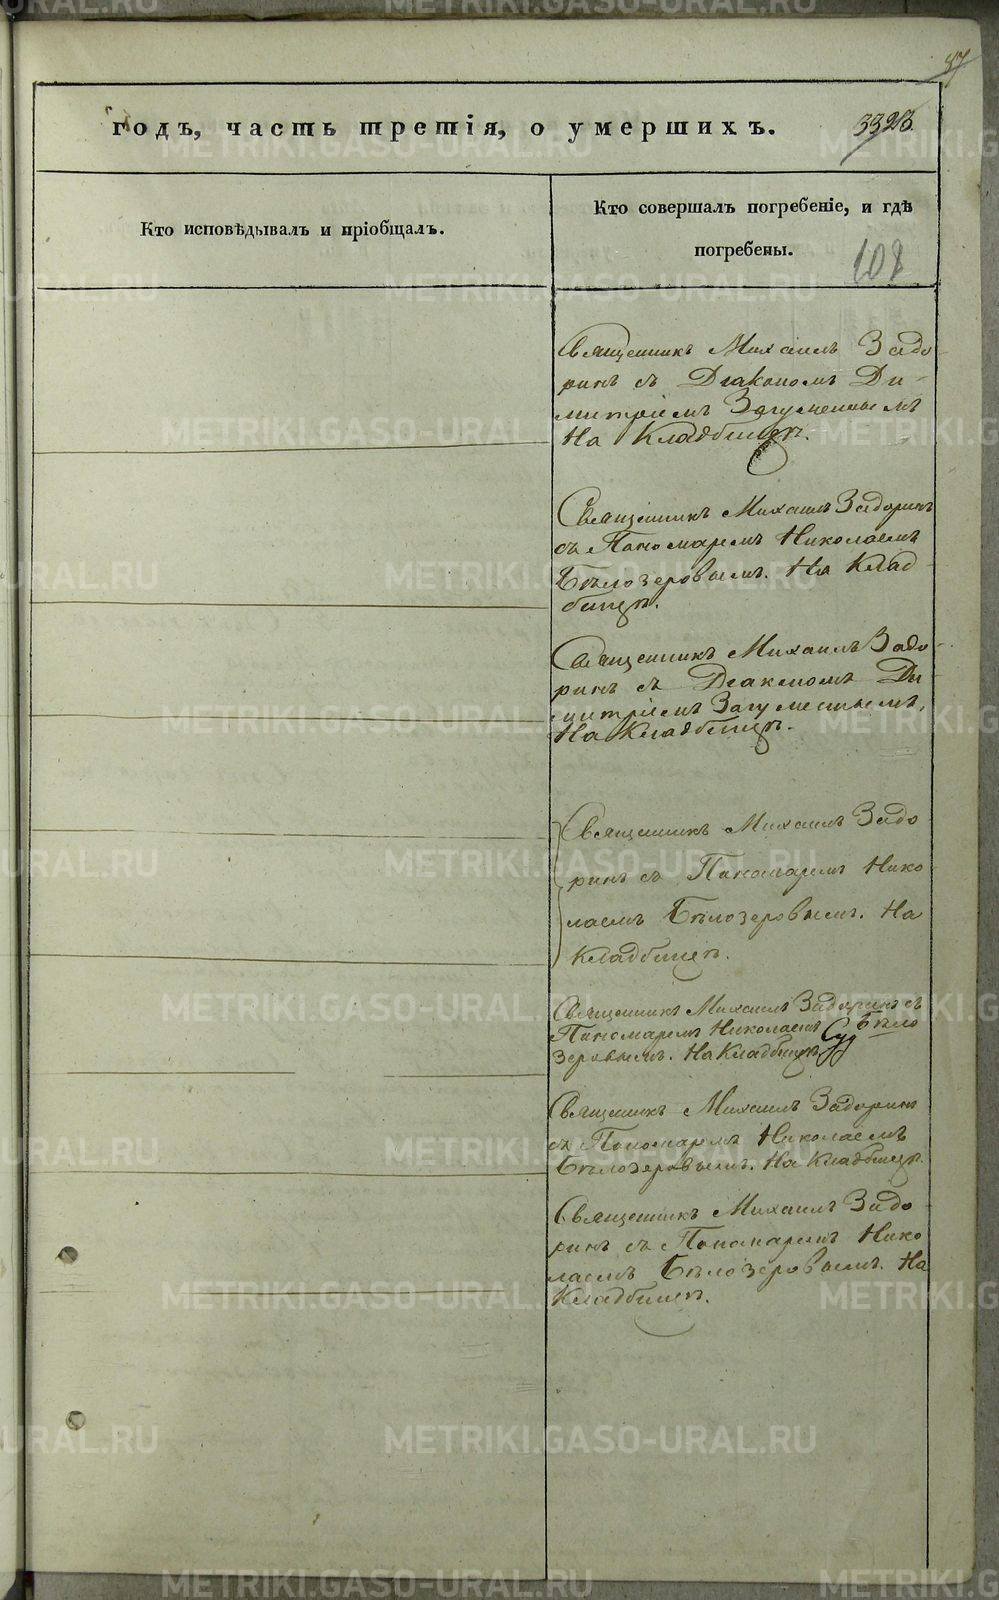 87
годъ, часть третія, о умершихъ.
3323
Кто исповѣдывалъ и пріобщалъ.
Кто совершалъ погребеніе, и гдѣ
погребены.
108
Священникъ Михаилъ Задо-
ринъ съ Діакономъ Ди-
митріемъ Загуменнымъ
На Кладбищѣ.
Священникъ Михаилъ Задоринъ
съ Пономаремъ Николаемъ
Бѣлозеровымъ. На Клад-
бищѣ.
Священникъ Михаилъ Задо-
ринъ съ Діакономъ Ди
митріемъ Загуменнымъ,
На Кладбищѣ.
Священникъ Михаилъ Задо
ринъ съ Пономаремъ Нико
лаемъ Бѣлозеровымъ. На
Кладбищѣ.
Священникъ Михаилъ Задоринъ съ
Пономаремъ Николаемъ Бѣло
зеровымъ. На Кладбищѣ
Священникъ Михаилъ Задоринъ
съ Пономаремъ Николаемъ
Бѣлозеровымъ. На Кладбищѣ.
Священникъ Михаилъ Задо
ринъ съ Пономаремъ Нико
лаемъ Бѣлозеровымъ. На
Кладбищѣ.
METRIKI.GASO-URAL.RU